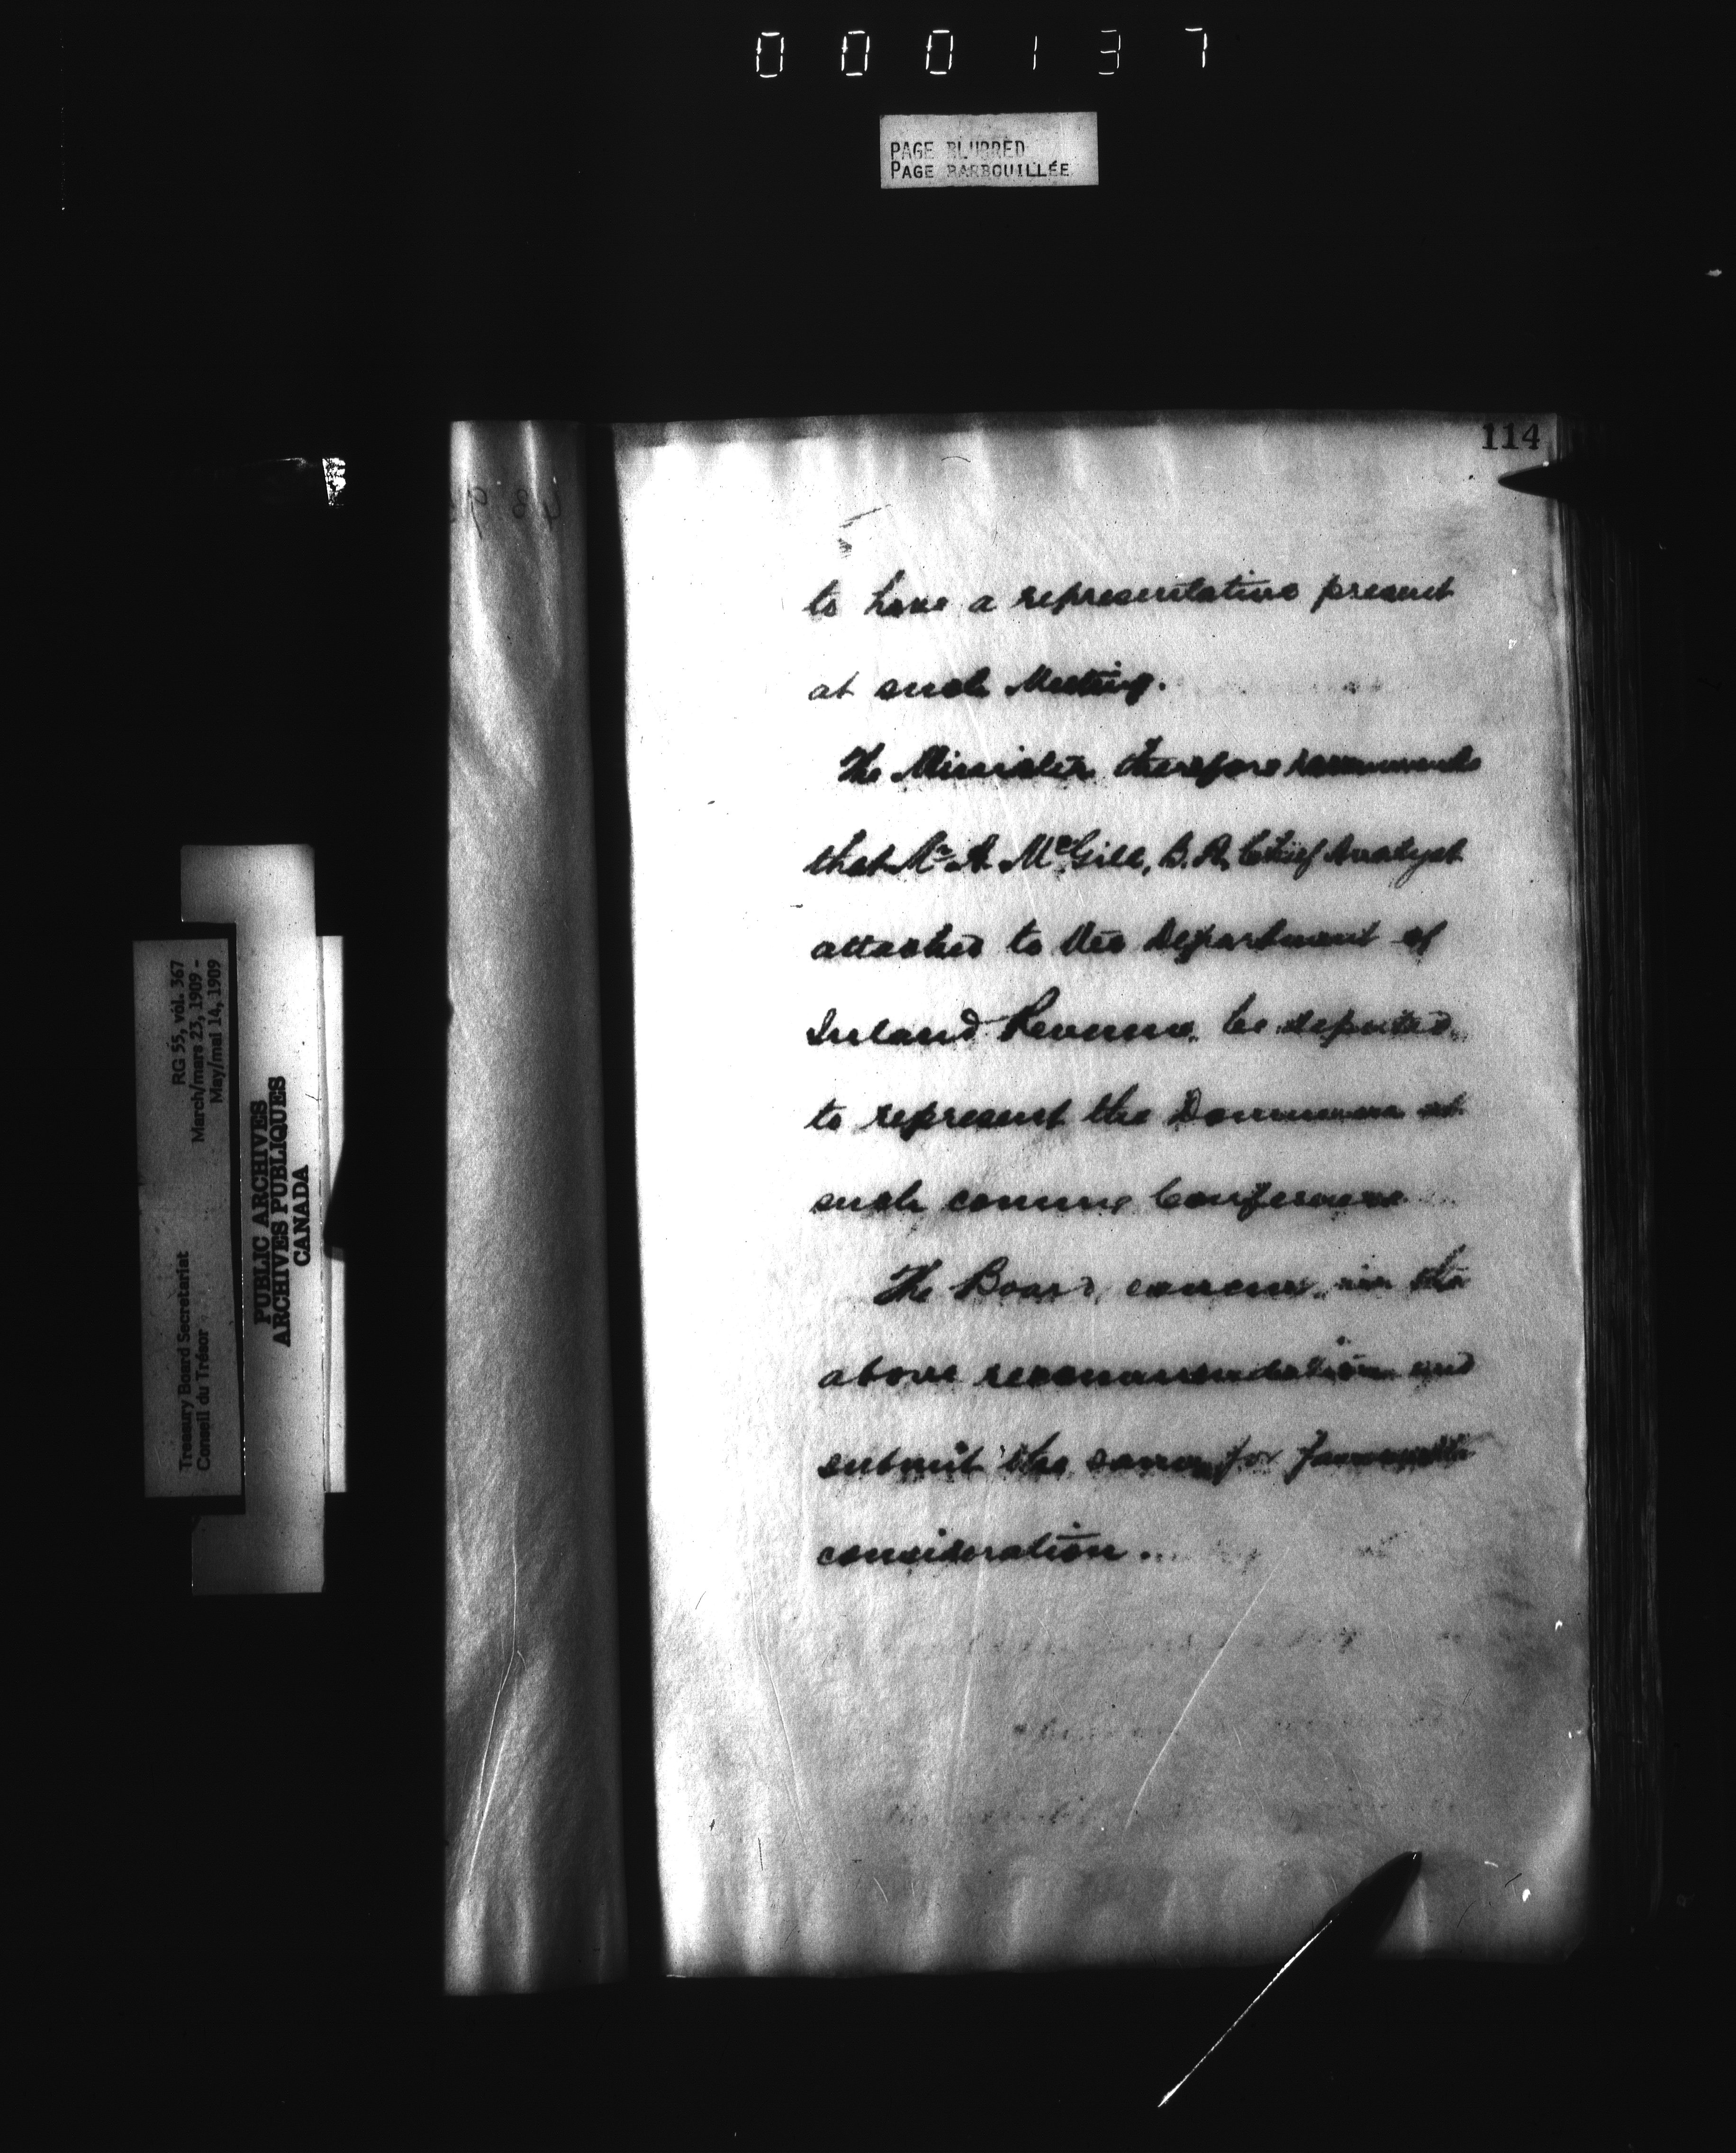 000137
PAGE BLURRED
PAGE BARBOUILLÉE
114
to have a representative present
at such Meeting.
The Minister therefore recommends
that Mr A. McGill, B.A. Chief Analyst
attached to the Department of
Inland Revenue be deputed
to represent the Dominion at
such coming Conference
The Board concur in the
above recommendation and
submit the same for favourable
consideration.
RG 55, vol. 367
March/mars 23, 1909 -
May/mai 14, 1909
Treasury Board Secretariat
Conseil du Trésor
PUBLIC ARCHIVES
ARCHIVES PUBLIQUES
CANADA